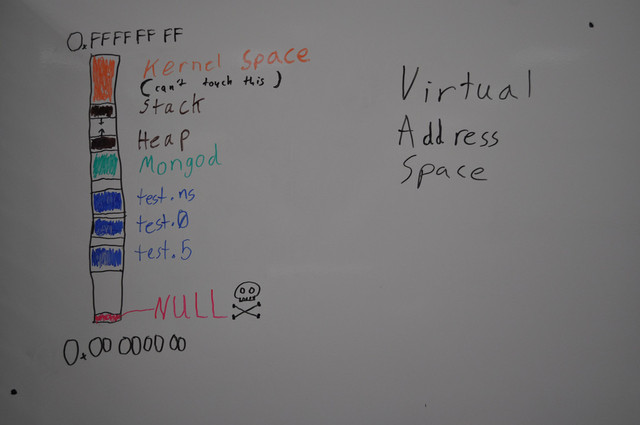 0xFFFFFFFF
Kernel Space
(can't touch this)
Stack
Heap
Mongod
test.ns
test.0
test.5
NULL
0x00000000
Virtual
Address
Space